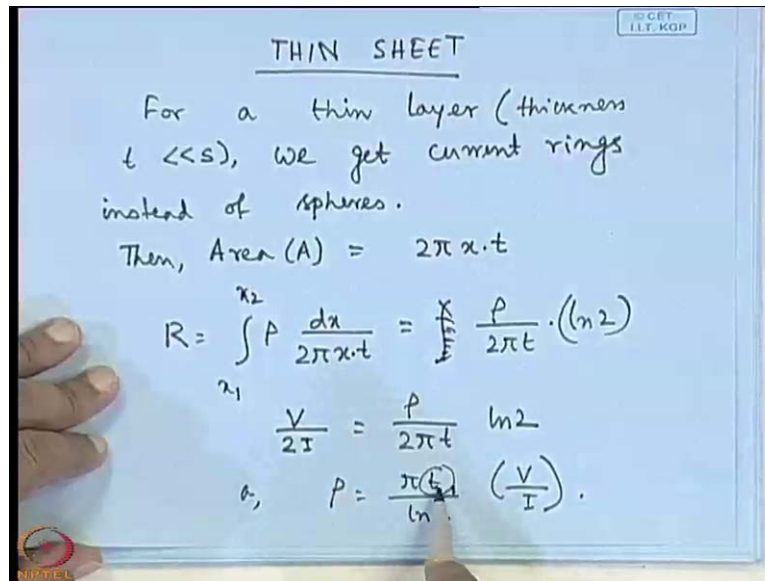 © CET
I.I.T. KGP
THIN SHEET
For a thin layer (thickness
t << s), we get current rings
instead of spheres.
Then, Area (A) = 2π x·t
R = ∫_{x1}^{x2} ρ dx / (2π x·t) = ρ / (2πt) · (ln 2)
V / 2I = ρ / (2πt) ln 2
ρ = π t / ln (V / I).
NPTEL